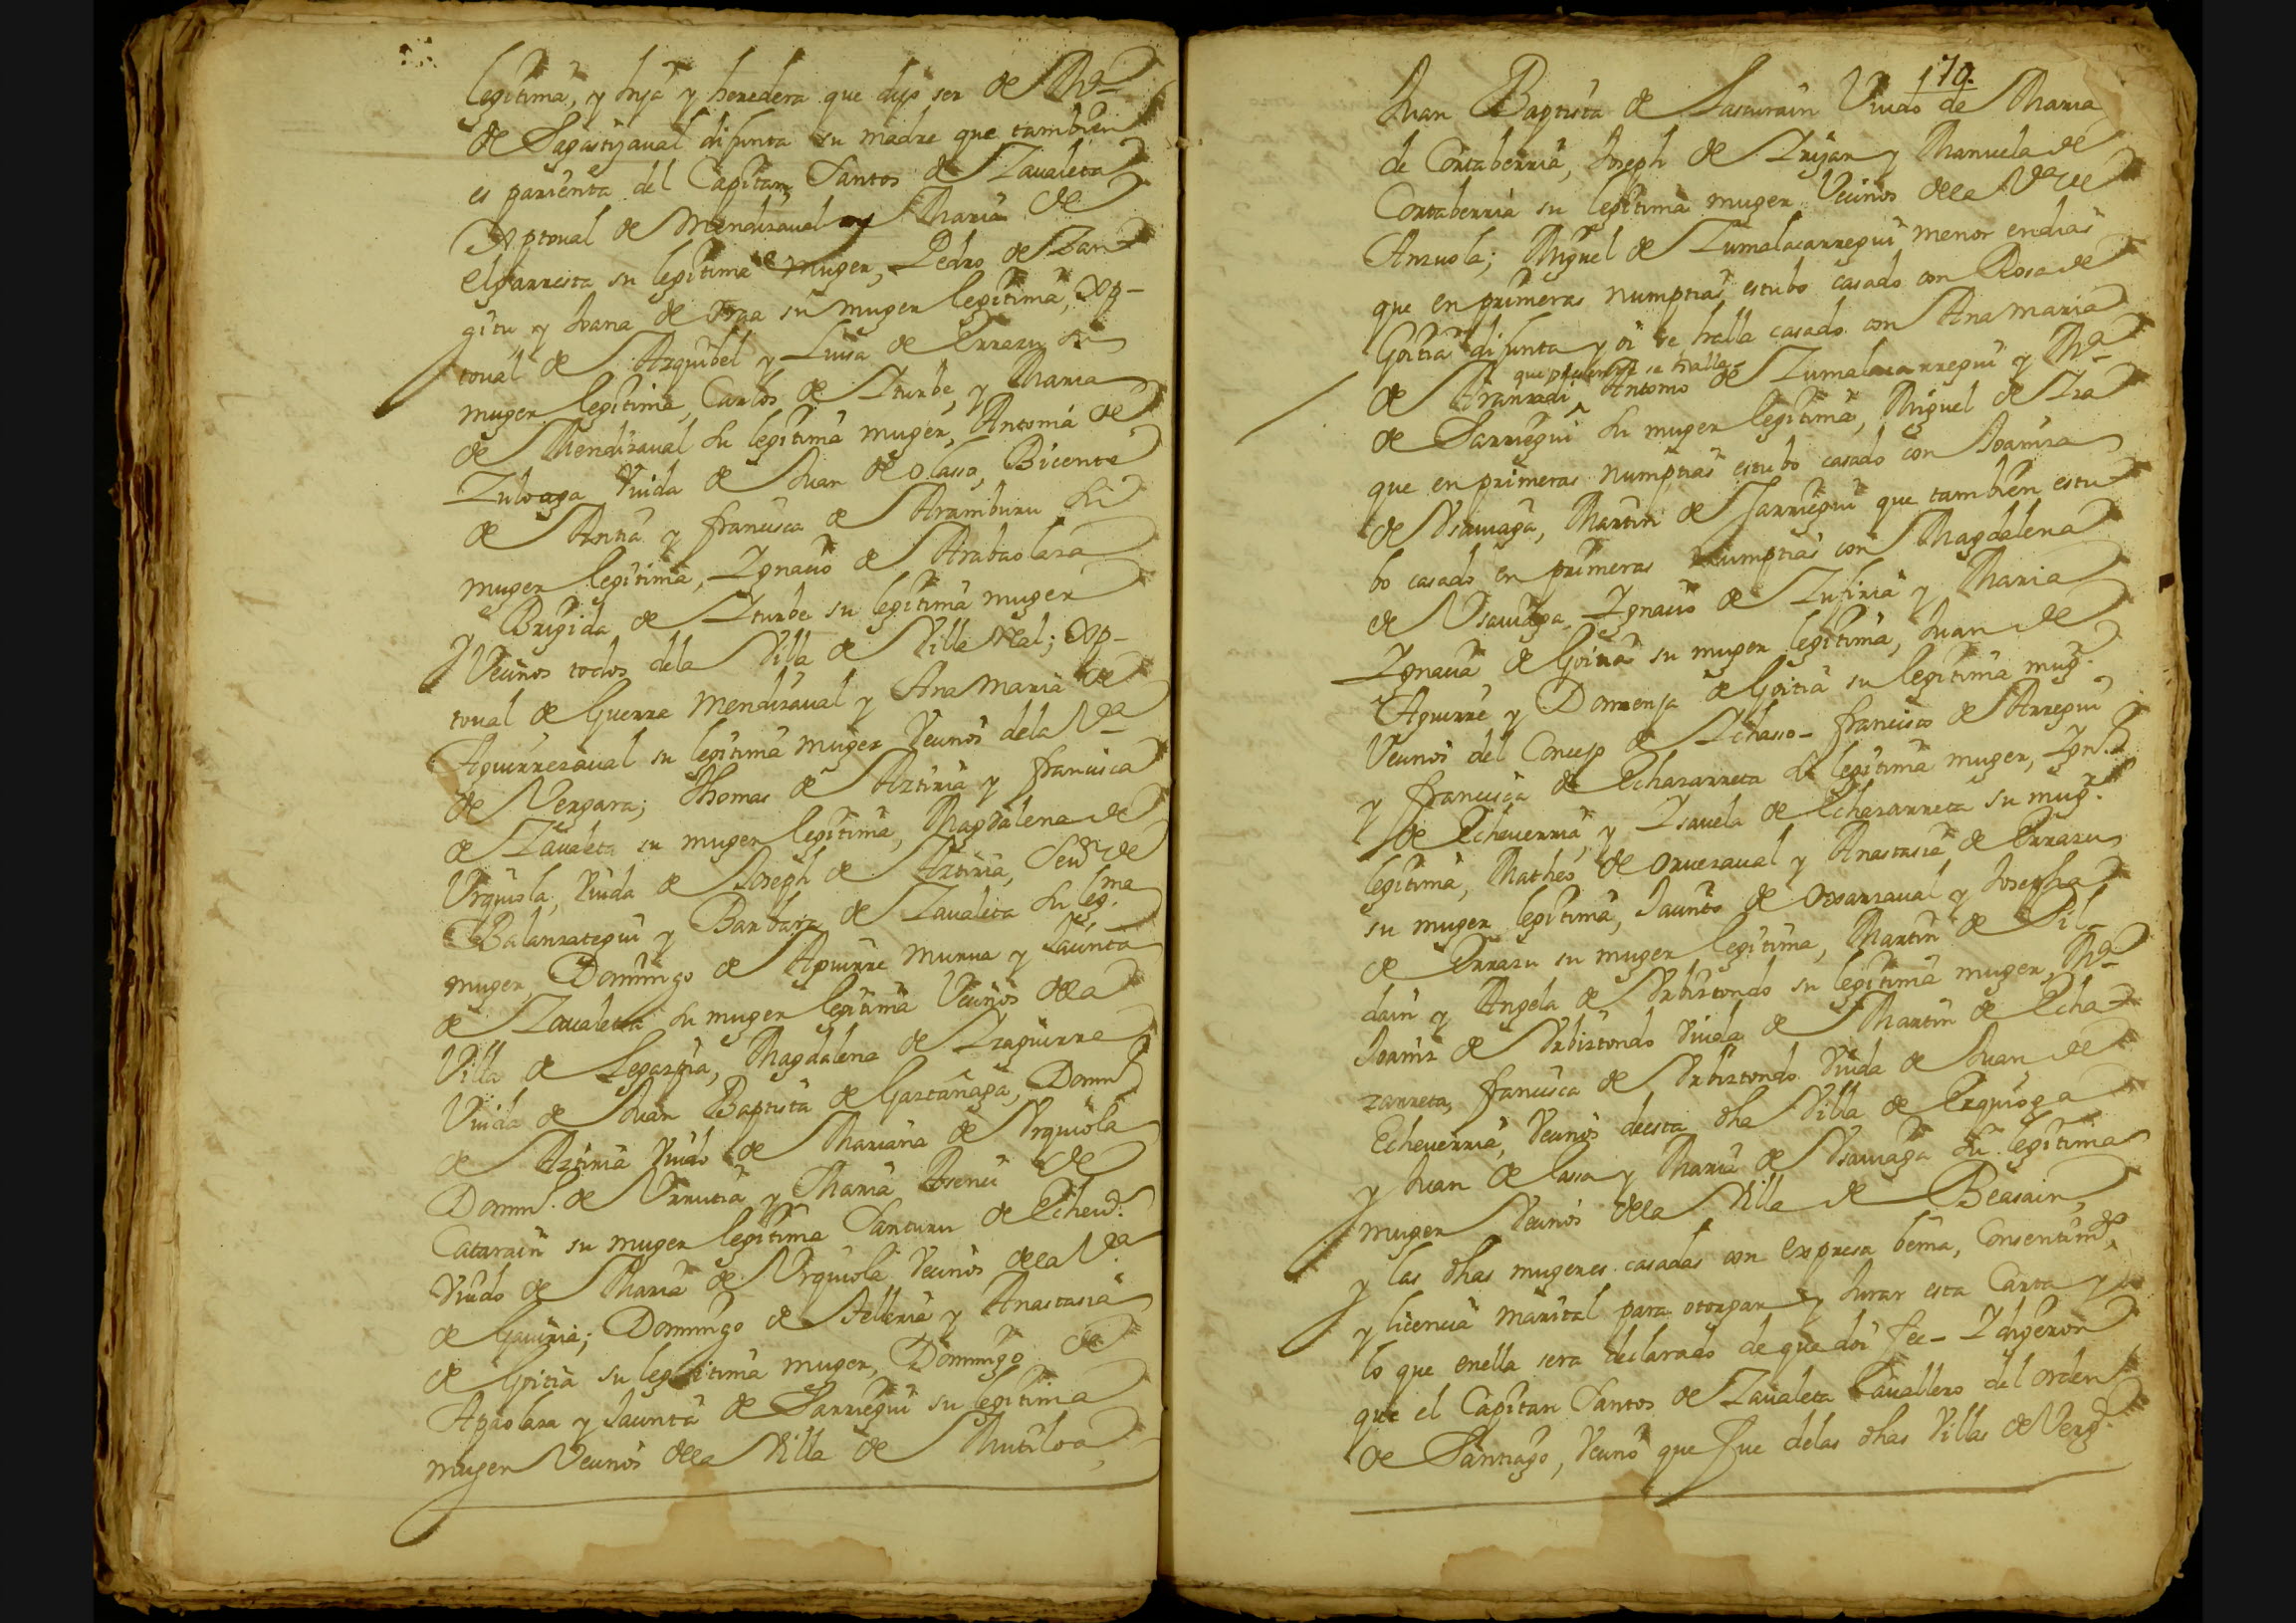 legitima, y hija y heredera que dijo ser de Mª
de Sagastizaual difunta su madre que tambien
es parienta del Capitan Santos de Zaualeta
Xptoual de Mendizaual y Maria de
Elgarresta su legitima muger, Pedro de Zan
gitu y Juana de Oraa su muger legitima, Xp-
toual de Azquibel y Luisa de Errazu su
muger legitima, Carlos de Yturbe, y Maria
de Mendizaual su legitima muger, Antonia de
Zuloaga Viuda de Juan de Olassa, Bicente
de Antia y francisca de Aramburu su
muger legitima, Ygnacio de Arabaolaza
y Brigida de Yturbe su legitima muger
Vecinos todos dela Villa de Villa Real; Xp-
toual de Guerra Mendizaual y Ana Maria de
Aguirrezaual su legitima muger Vecinos dela Vª
de Vergara; Thomas de Aztiria y francisca
de Zaualeta su muger legitima, Magdalena de
Urquiola, Viuda de Joseph de Aztiria, de
Balanzategui y Barbara de Zaualeta su legma
muger, Domingo de Aguirre Murua y Jacinta
de Zaualeta su muger legitima Vecinos dela
Villa de Legazpia, Magdalena de Yzaguirre
Viuda de Juan Baptista de Gaztañaga, Domin
de Aztiria Viudo de Mariana de Urquiola
Domin. de Urrutia y Maria Asencia de
Catarain su muger legitima Santuru de Echeu.
Viudo de Maria de Urquiola Vecinos dela Vª
de Gauiria; Domingo de Telleria y Anastasia
de Goitia su legitima muger, Domingo de
Apaolaza y Jacinta de Sarriegui su legitima
muger Vecinos dela Villa de Mutiloa,
170.
Juan Baptista de Lascurain Viudo de Maria
de Cortaberria, Joseph de Yrizar y Manuela de
Cortaberria su legitima muger Vecinos dela Vª de
Anzuola; Miguel de Zumalacarregui menor endias
que en primeras numptias estubo casado con Rosa de
Goitia difunta y oi se halla casado con Ana Maria
que presente se halla
de Aranzadi Antonio de Zumalacarregui y Mª
de Sarriegui su muger legitima, Miguel de Yza
que en primeras numptias estubo casado con Joaniza
de Usauiaga, Martin de Sarriegui que tambien estu
bo casado en primeras numptias con Magdalena
de Usauiaga, Ygnacio de Zufiria y Maria
Ygnacia de Goitia su muger legitima, Juan de
Aguirre y Domenja de Goitia su legitima mug.
Vecinos del Concejo de Ychasso- francisco de Arregui
y francisca de Echazarreta su legitima muger, Ygn.
de Echeuerria, y Ysauela de Echezarreta su mug.
legitima, Matheo de Oruezaual y Anastasia de Errazu
su muger legitima, Jacinto de Orsarzaual y Josepha
de Errazu su muger legitima, Martin de Pil-
dain y Angela de Urbiztondo su legitima muger, Mª
Joaniz de Urbiztondo Viuda de Martin de Echa
zarreta, francisca de Urbiztondo Viuda de Juan de
Echeuerria, Vecinos deesta dha Villa de Ezquioga
y Juan de lasa y Maria de Usauiaga su legitima
muger Vecinos dela Villa de Beasain,
y las dhas mugeres casadas con expresa benia, Consentimto,
y licencia marital para otorgar y Jurar esta Carta y
lo que enella sera declarado de que doi fee- Y digeron
que el Capitan Santos de Zaualeta Cauallero del orden
de Santiago, Vecino que fue delas dhas Villas de Verg.